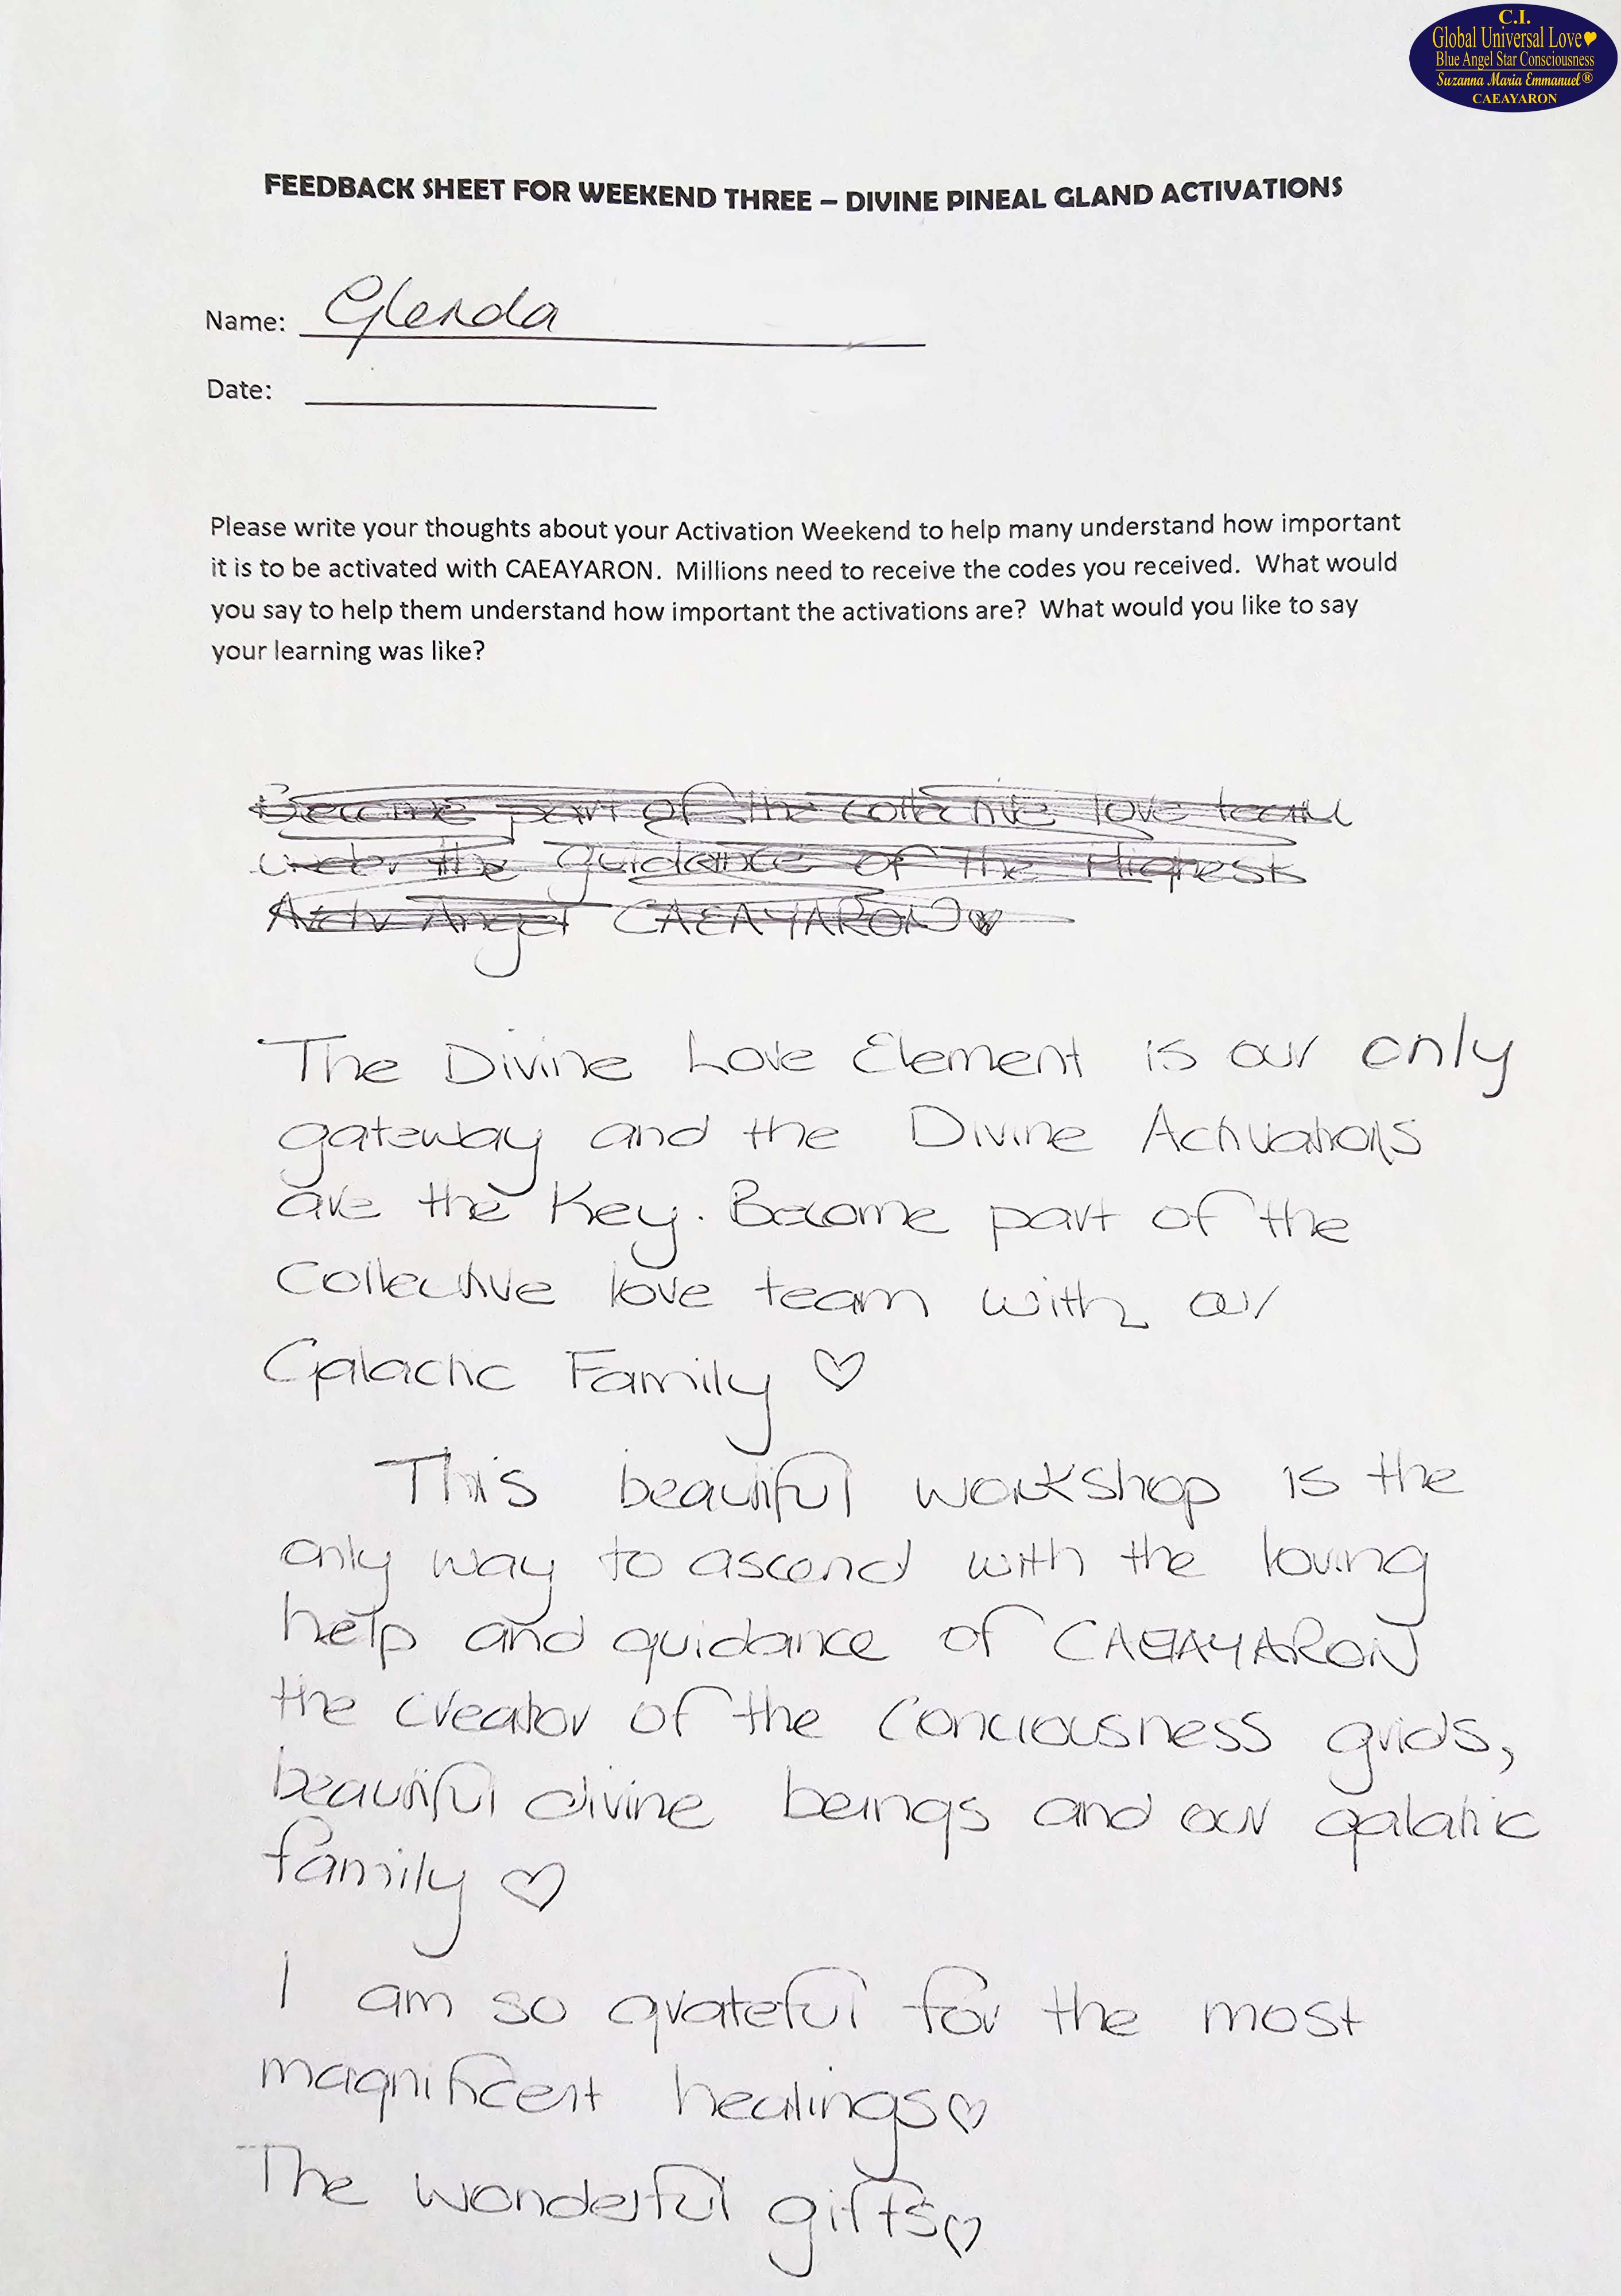 C.I.
Global Universal Love
Blue Angel Star Consciousness
Suzanna Maria Emmanuel®
CAEAYARON
FEEDBACK SHEET FOR WEEKEND THREE – DIVINE PINEAL GLAND ACTIVATIONS
Name: Glenda
Date:
Please write your thoughts about your Activation Weekend to help many understand how important
it is to be activated with CAEAYARON. Millions need to receive the codes you received. What would
you say to help them understand how important the activations are? What would you like to say
your learning was like?
Become part of the collective love team
under the guidance of the Highest
Arch Angel CAEAYARON♡
The Divine Love Element is our only
gateway and the Divine Activations
are the Key. Become part of the
Collective love team with our
Galactic Family ♡
This beautiful workshop is the
only way to ascend with the loving
help and guidance of CAEAYARON
the creator of the Conciousness grids,
beautiful divine beings and our galatic
family ♡
I am so grateful for the most
magnificent healings♡
The wonderful gifts♡